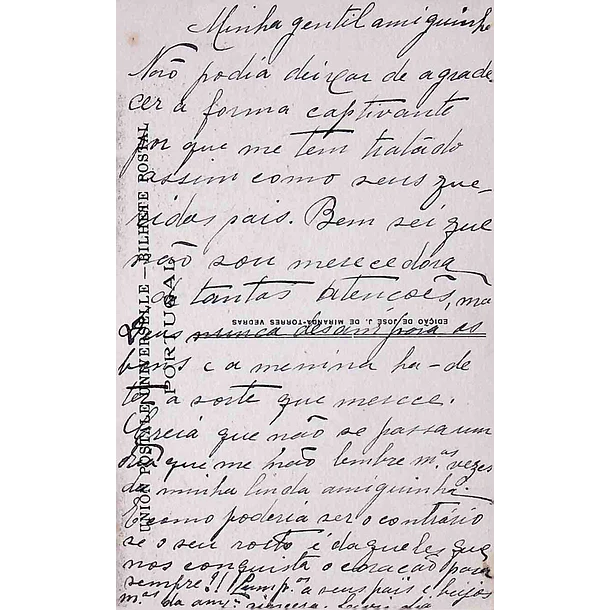 Minha gentil amiguinha
Não podia deixar de agrade-
cer a forma captivante
por que me tem tratado
assim como seus que-
ridos pais. Bem sei que
não sou merecedora
de tantas atenções, mas
Deus nunca desampara os
bons e a menina ha-de
ter a sorte que merece.
Creia que não se passa um
dia que me não lembre m.as vezes
da minha linda amiguinha.
E como poderia ser o contrário
se o seu rosto é daqueles que
nos conquista o coração para
sempre!! Cump.os a seus pais e beijos
m.os da am.a sincera
UNION POSTALE UNIVERSELLE — BILHETE POSTAL
PORTUGAL
EDIÇÃO DE JOSÉ J. DE MIRANDA-TORRES VEDRAS